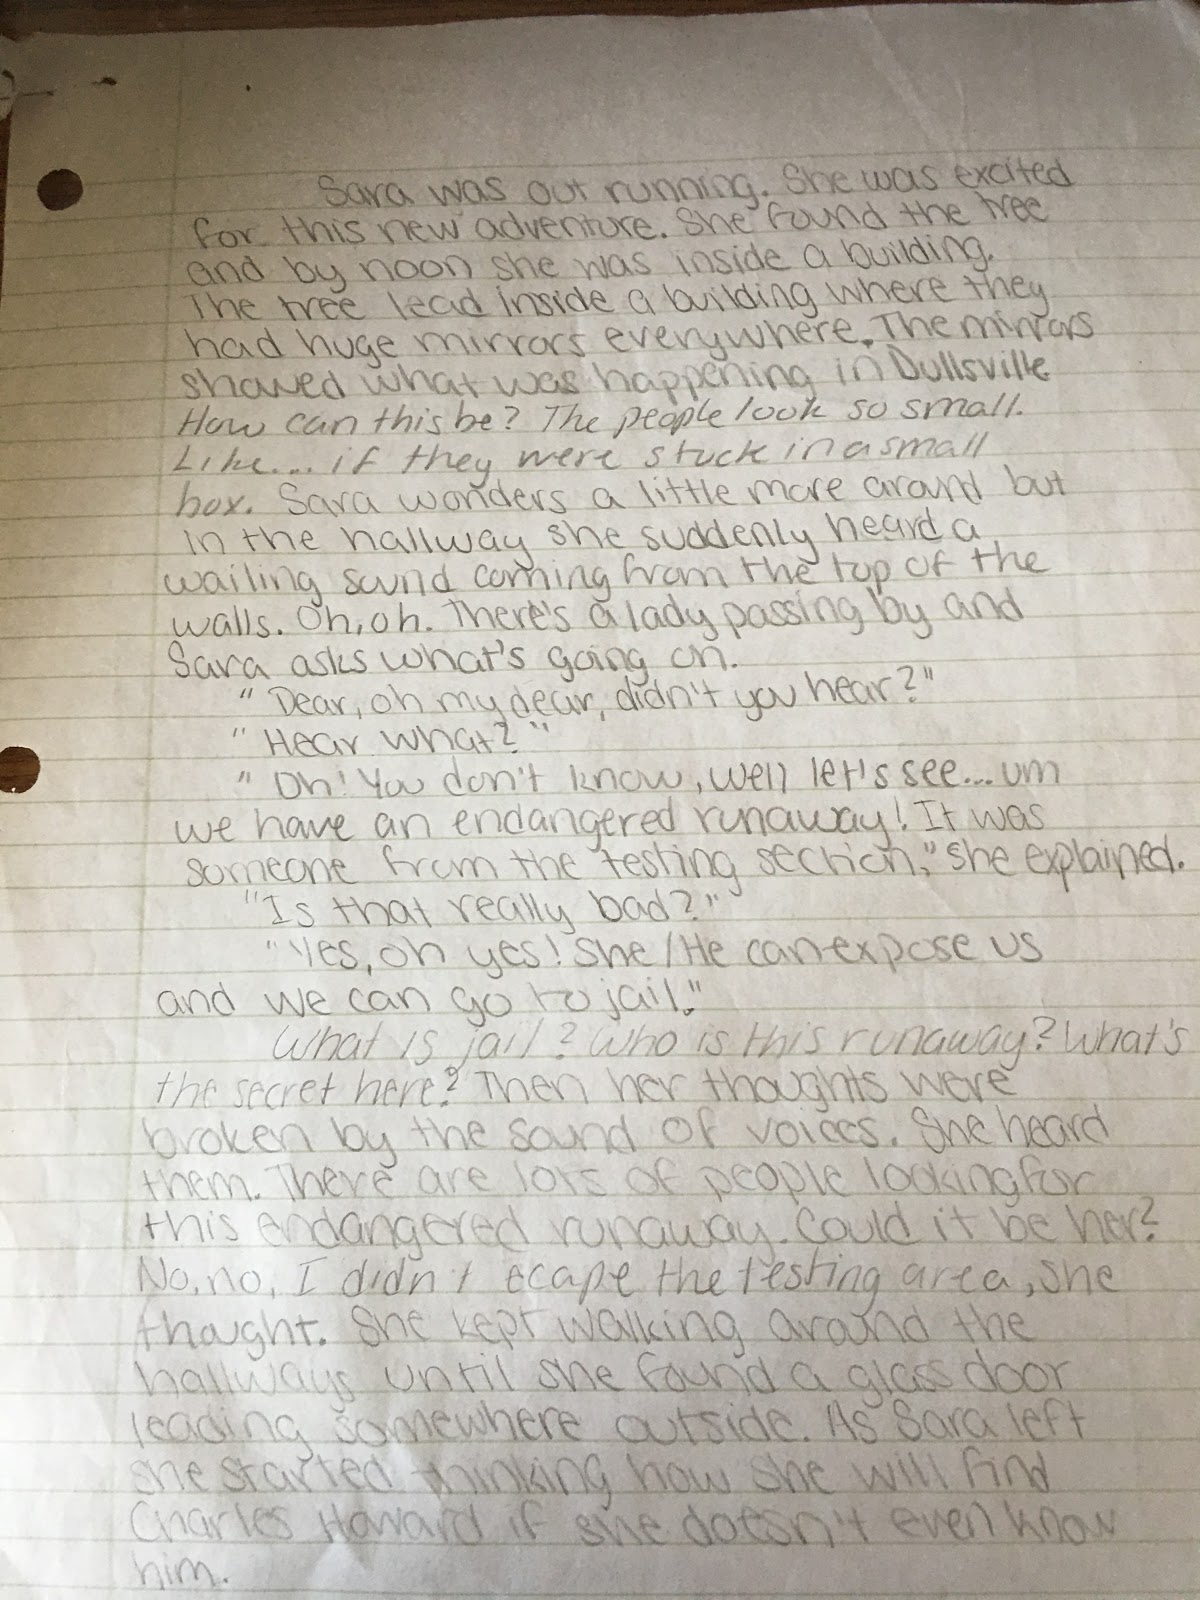 Sara was out running. She was excited
for this new adventure. She found the tree
and by noon she was inside a building.
The tree lead inside a building where they
had huge mirrors everywhere. The mirrors
showed what was happening in Dullsville
How can this be? The people look so small.
Like... if they were stuck in a small
box. Sara wonders a little more around but
in the hallway she suddenly heard a
wailing sound coming from the top of the
walls. Oh, oh. There's a lady passing by and
Sara asks what's going on.
"Dear, oh my dear, didn't you hear?"
"Hear what?"
"Oh! You don't know, well let's see... um
we have an endangered runaway! It was
someone from the testing section," she explained.
"Is that really bad?"
"Yes, oh yes! She/He can expose us
and we can go to jail."
What is jail? Who is this runaway? What's
the secret here? Then her thoughts were
broken by the sound of voices. She heard
them. There are lots of people looking for
this endangered runaway. Could it be her?
No, no, I didn't ecape the testing area, she
thought. She kept walking around the
hallways until she found a glass door
leading somewhere outside. As Sara left
she started thinking how she will find
Charles Howard if she doesn't even know
him.